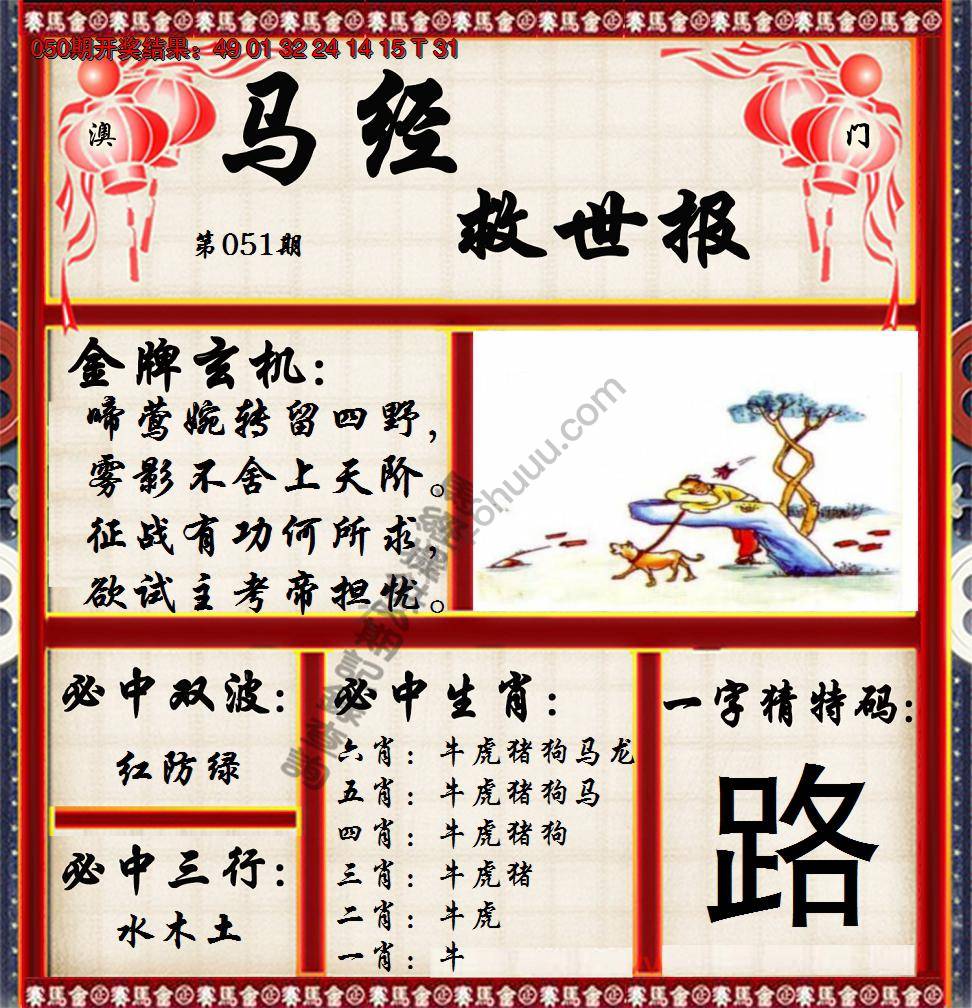 050期开奖结果：49 01 32 24 14 15 T 31
澳
门
马经
救世报
第051期
金牌玄机：
啼莺婉转留四野，
雾影不舍上天阶。
征战有功何所求，
欲试主考帝担忧。
必中双波：
红防绿
必中三行：
水木土
必中生肖：
六肖：牛虎猪狗马龙
五肖：牛虎猪狗马
四肖：牛虎猪狗
三肖：牛虎猪
二肖：牛虎
一肖：牛
一字猜特码：
路